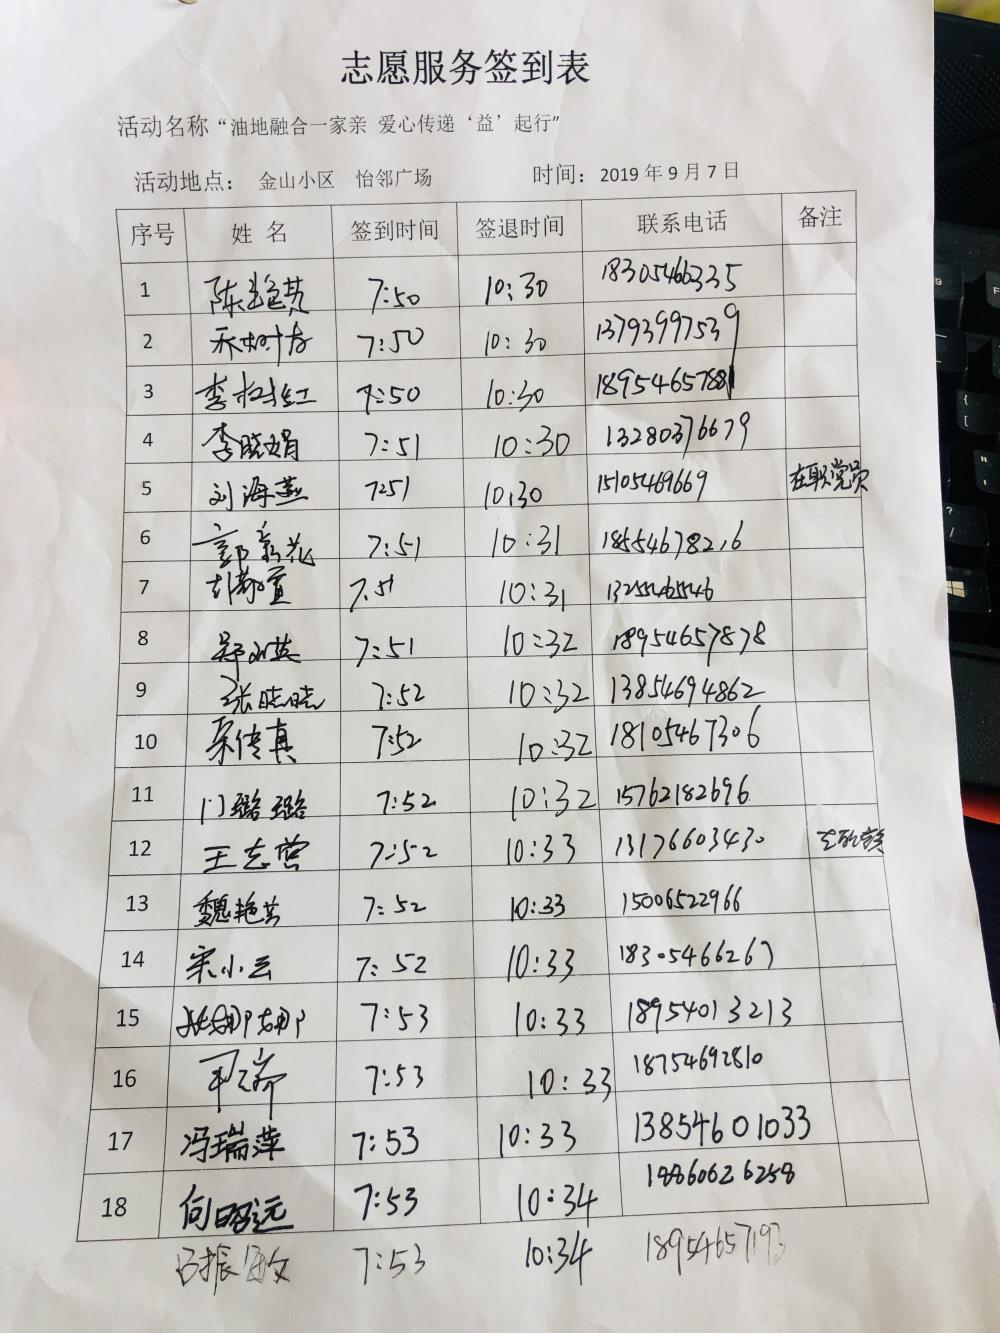 志愿服务签到表
活动名称“油地融合一家亲 爱心传递‘益’起行”
活动地点： 金山小区 怡邻广场 时间：2019年9月7日
序号 姓名 签到时间 签退时间 联系电话 备注
1 7:50 10:30 18305466335
2 7:50 10:30 13793997539
3 李 红 7:50 10:30 1895465788
4 李晓娟 7:51 10:30 13280376679
5 刘海燕 7:51 10:30 15105469669 在职党员
6 郭新花 7:51 10:31 18554678216
7 7:51 10:31 13255465546
8 7:51 10:32 18954657878
9 张晓晓 7:52 10:32 13854694862
10 宋传真 7:52 10:32 18105467306
11 门璐璐 7:52 10:32 15762182696
12 王志营 7:52 10:33 13176603430
13 魏艳芸 7:52 10:33 15006522966
14 宋小云 7:52 10:33 18305466267
15 7:53 10:33 18954013213
16 7:53 10:33 18754692810
17 冯瑞萍 7:53 10:33 13854601033
18 何昭远 7:53 10:34 18860626258
吕振 7:53 10:34 18954657193